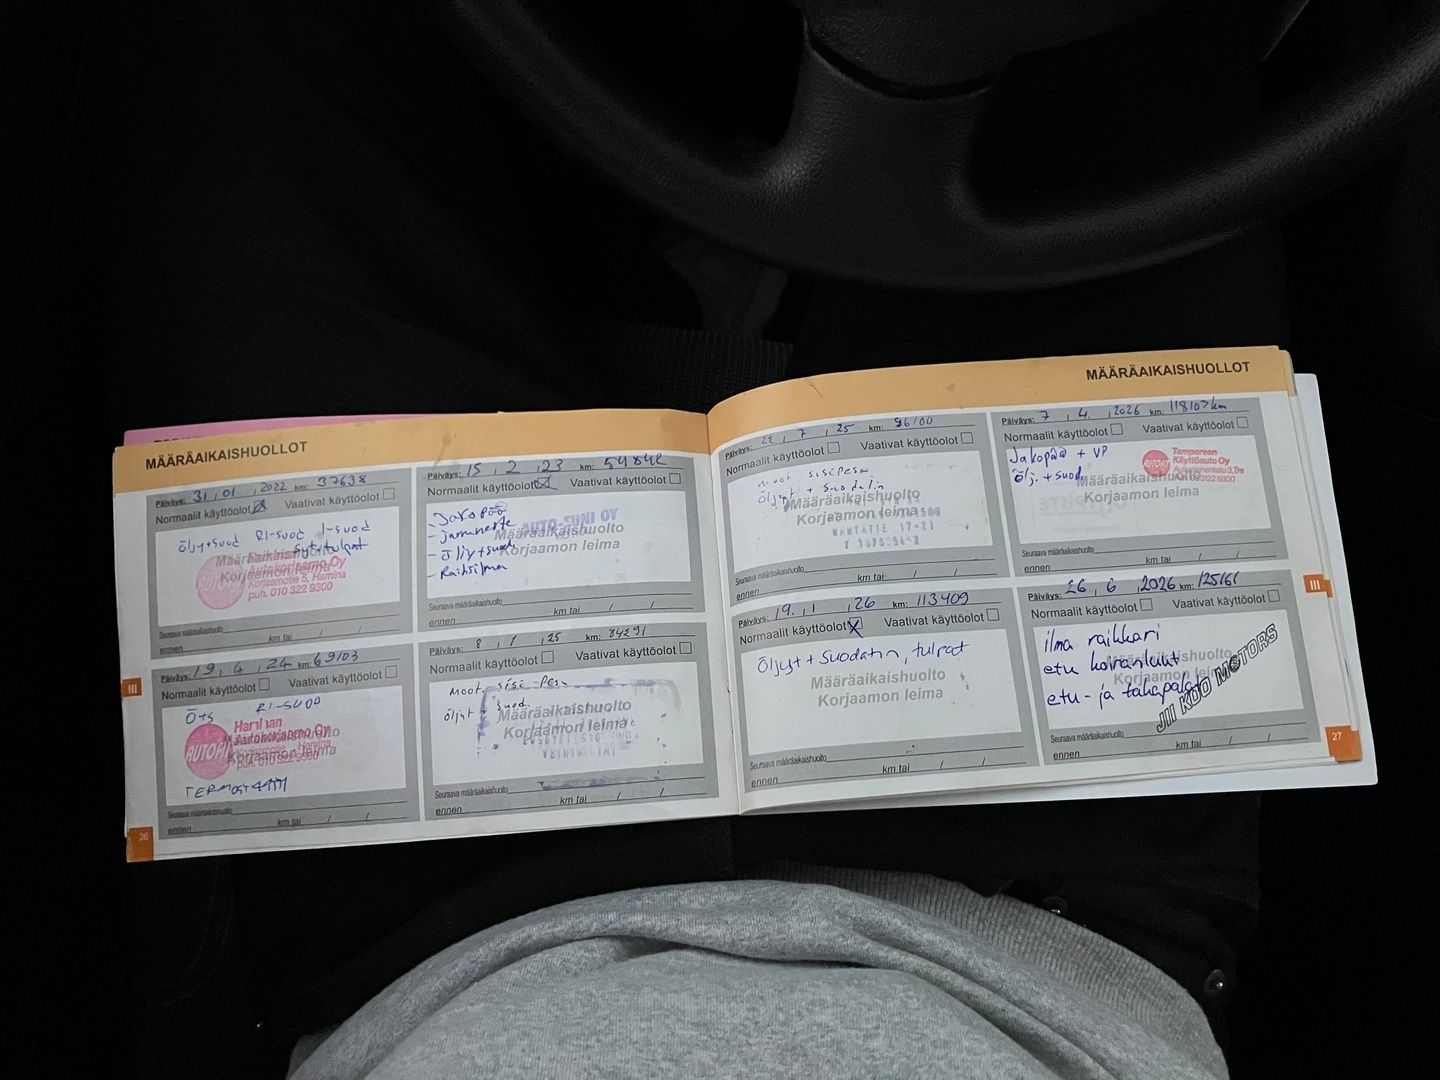 MÄÄRÄAIKAISHUOLLOT
Päiväys: 31, 01, 2022 km: 37638
Normaalit käyttöolot Vaativat käyttöolot
öljy+suod RI-suod I-suod
Määräaikaishuolto
Korjaamon leima
Korjaamotie 5, Hamina
puh. 010 322 9300
Seuraava määräaikaishuolto
ennen km tai / /
Päiväys: 15, 2, 23 km: 54842
Normaalit käyttöolot Vaativat käyttöolot
- Jakopää
- öljy+suod
AUTO-SUNI OY
Määräaikaishuolto
Korjaamon leima
Seuraava määräaikaishuolto
ennen km tai / /
Päiväys: 19, 4, 24 km: 69103
Normaalit käyttöolot Vaativat käyttöolot
Ö+S RI-SUOD
Määräaikaishuolto
Korjaamon leima
puh. 010 322 9300
Seuraava määräaikaishuolto
ennen km tai / /
Päiväys: 8, 1, 25 km: 84291
Normaalit käyttöolot Vaativat käyttöolot
moot. sisä-Pesu
öljyt + suod.
Määräaikaishuolto
Korjaamon leima
Seuraava määräaikaishuolto
ennen km tai / /
26
III
MÄÄRÄAIKAISHUOLLOT
Päiväys: 22, 7, 25 km: 96100
Normaalit käyttöolot Vaativat käyttöolot
moot sisäpesu
öljyt + suodatin
Määräaikaishuolto
Korjaamon leima
RANTATIE 17-21
Seuraava määräaikaishuolto
ennen km tai / /
Päiväys: 7, 4, 2026 km: 118107km
Normaalit käyttöolot Vaativat käyttöolot
Jakopää + VP
Ölj. + suod.
Tampereen
Käyttöauto Oy
Määräaikaishuolto
Korjaamon leima
Seuraava määräaikaishuolto
ennen km tai / /
Päiväys: 19, 1, 26 km: 113409
Normaalit käyttöolot Vaativat käyttöolot
Öljyt + Suodatin, tulpat
Määräaikaishuolto
Korjaamon leima
Seuraava määräaikaishuolto
ennen km tai / /
Päiväys: 26, 6, 2026 km: 125161
Normaalit käyttöolot Vaativat käyttöolot
ilma raikkari
etu koiranluut
etu- ja takapalat
Määräaikaishuolto
Korjaamon leima
JII KOO MOTORS
Seuraava määräaikaishuolto
ennen km tai / /
III
27